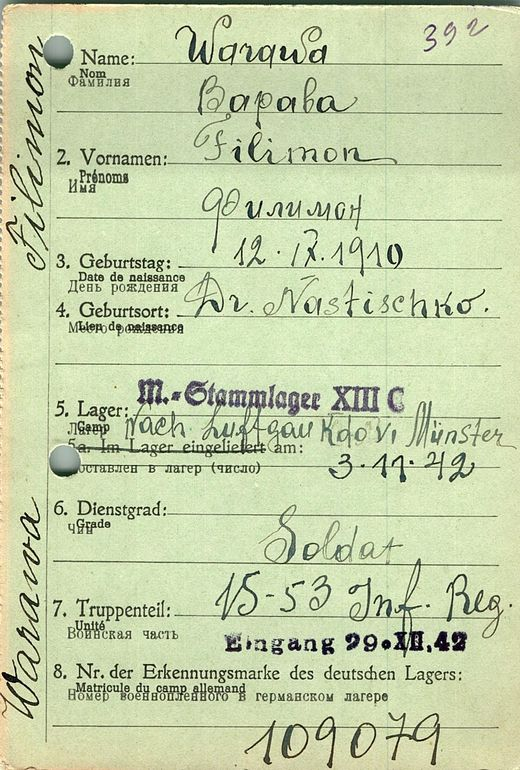 392
Name: Warawa
Nom
Фамилия
Варава
2. Vornamen: Filimon
Prénoms
Имя
Филимон
3. Geburtstag: 12. IX. 1910
Date de naissance
День рождения
4. Geburtsort: Dr. Nastischko.
Lieu de naissance
Место рождения
M.-Stammlager XIII C
5. Lager:
Camp
Лагерь
Nach Luftgau Kdo VI Münster
5a. Im Lager eingeliefert am: 3.11.42
доставлен в лагерь (число)
6. Dienstgrad:
Grade
чин
Soldat
7. Truppenteil: 15-53 Inf. Reg.
Unité
Воинская часть
Eingang 29.XII.42
8. Nr. der Erkennungsmarke des deutschen Lagers:
Matricule du camp allemand
Номер военнопленного в германском лагере
109079
Warawa Filimon